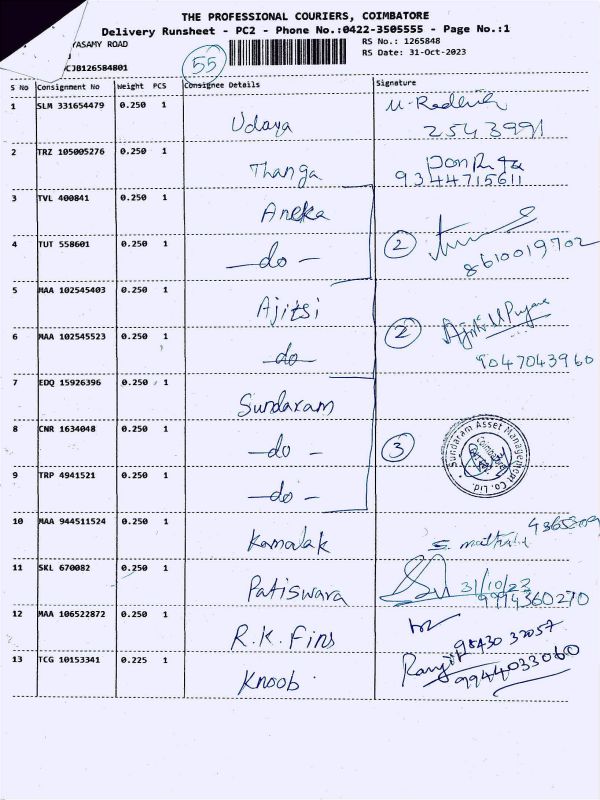 THE PROFESSIONAL COURIERS, COIMBATORE
Delivery Runsheet - PC2 - Phone No.:0422-3505555 - Page No.:1
YASAMY ROAD
RS No.: 1265848
RS Date: 31-Oct-2023
55
CJB126584801
S No Consignment No Weight PCS Consignee Details Signature
1 SLM 331654479 0.250 1 Udaya
2543991
2 TRZ 105005276 0.250 1 Thanga
9344715611
3 TVL 400841 0.250 1 Aneka
4 TUT 558601 0.250 1 -do- 2
8610019702
5 MAA 102545403 0.250 1 Ajitsi
6 MAA 102545523 0.250 1 -do- 2
9047043960
7 EDQ 15926396 0.250 1 Sundaram
8 CNR 1634048 0.250 1 -do- 3
Sundaram Asset Management Co. Ltd.
Coimbatore
9 TRP 4941521 0.250 1 -do-
10 MAA 944511524 0.250 1 Kamalak
11 SKL 670082 0.250 1 Patiswara 31/10/23
9994360270
12 MAA 106522872 0.250 1 R.K. Fins
98430 32057
13 TCG 10153341 0.225 1 Knoob Ranjit
9944033060